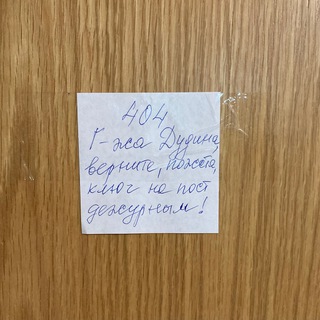 404
Г-жа Дудина,
верните, пожста,
ключ на пост
дежурным!